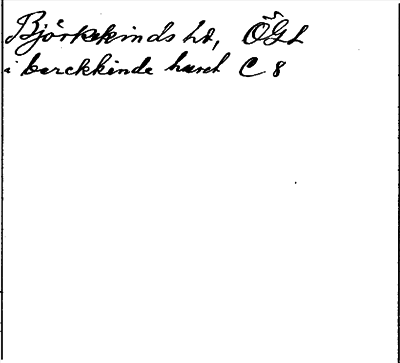 Björkekinds hd, ÖGL
i berekkinde hæret C 8